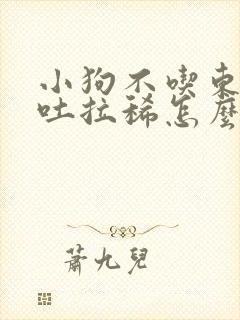 小狗不喫東
吐拉稀怎麼
蕭九兒